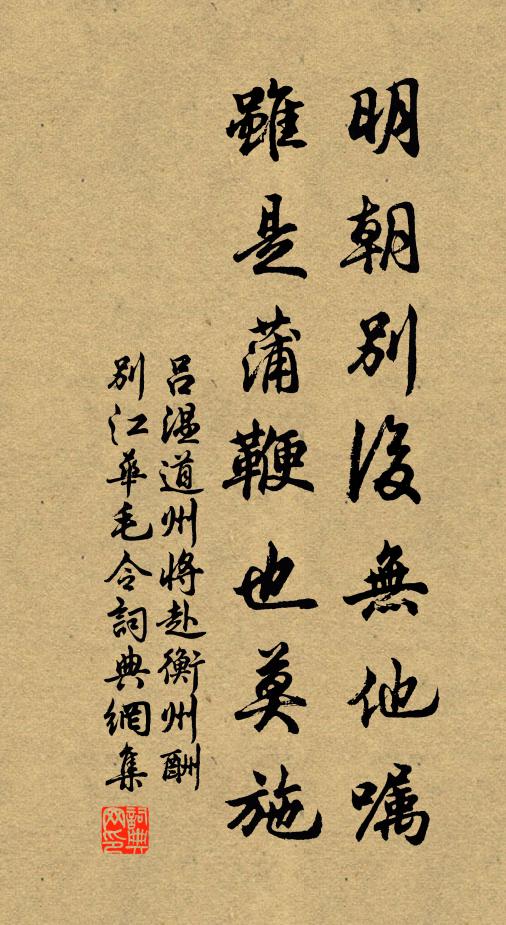 明朝别後無他嘱
雖是蒲鞭也莫施
吕温道州将赴衡州酬
别江華毛令詞典網集
詞典網印